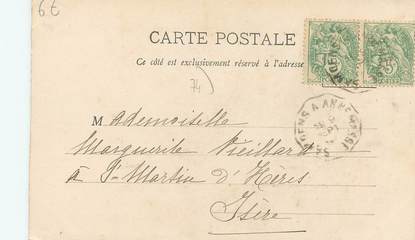 6€
CARTE POSTALE
Ce côté est exclusivement réservé à l'adresse
74
Mademoiselle
Marguerite Vieillard
à St-Martin d'Hères
Isère